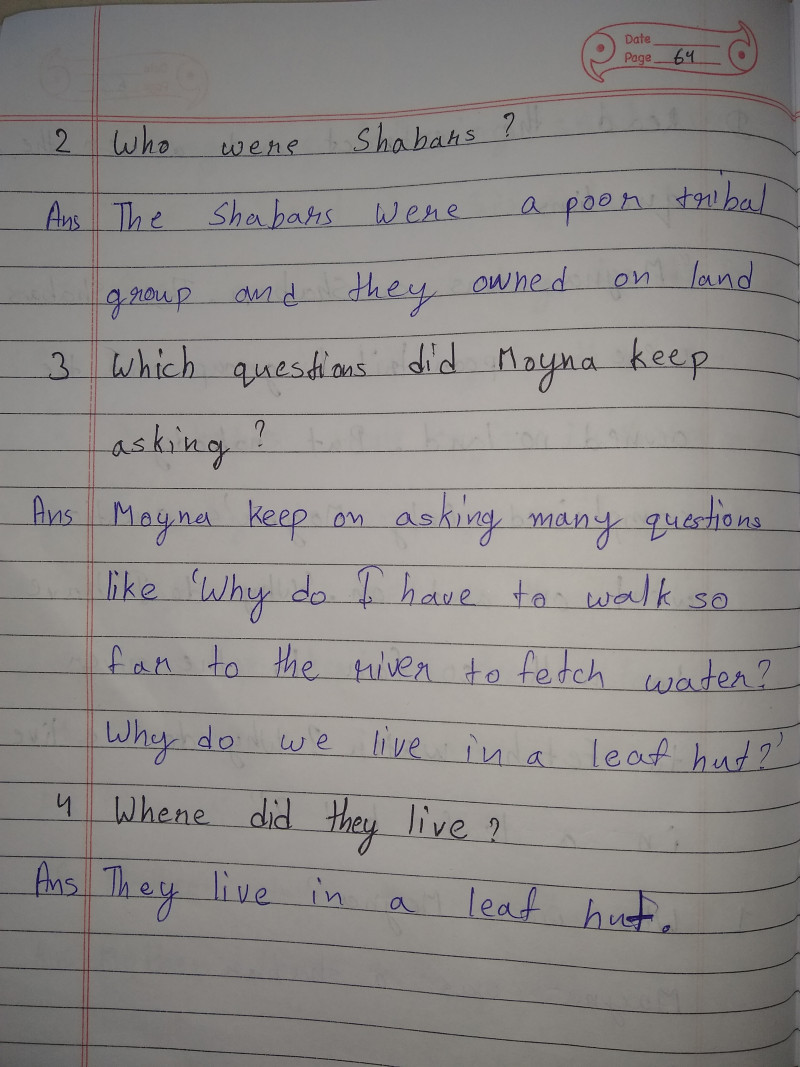 Date
Page 64
2 Who were Shabars ?
Ans The Shabars were a poor tribal
group and they owned on land
3 Which questions did Moyna keep
asking ?
Ans Moyna keep on asking many questions
like 'Why do I have to walk so
far to the river to fetch water?
Why do we live in a leaf hut?'
4 Where did they live ?
Ans They live in a leaf hut.